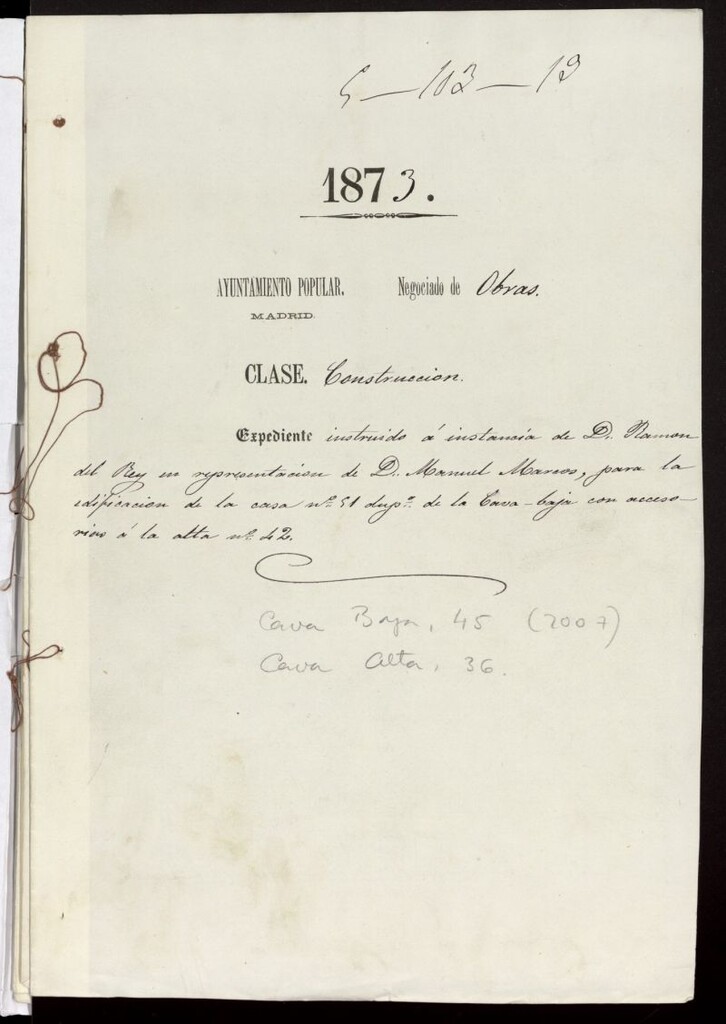 5 — 103 — 19
1873.
AYUNTAMIENTO POPULAR. Negociado de Obras.
MADRID.
CLASE. Construccion.
Expediente instruido á instancia de D. Ramon
del Rey en representacion de D. Manuel Marcos, para la
edificacion de la casa nº 51 dupº. de la Cava-baja con acceso-
rias á la alta nº 42.
Cava Baja, 45 (2007)
Cava Alta, 36.